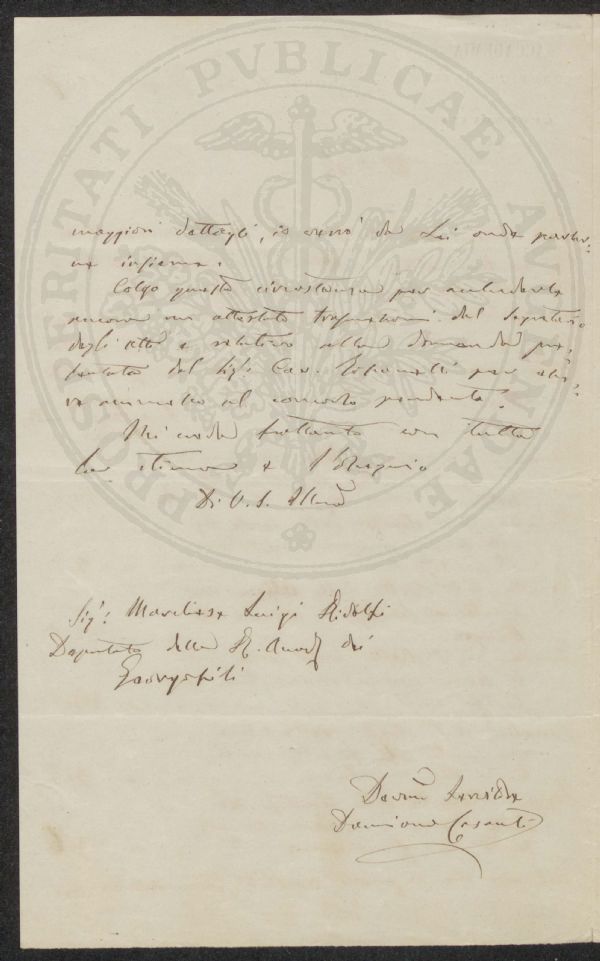 PROSPERITATI PVBLICAE AVGENDAE
maggiori dettagli, io verrò da Lei onde parlar-
ne insieme.
Colgo questa circostanza per
ancora un attestato trasmessomi dal Segretario
degli atti e relativo alla domanda pre-
sentata dal Sigr Cav. per
al concorso pendente.
Mi creda frattanto con tutta
la stima e l'Ossequio
Di V. S. Illma
Sigr: Marchese Luigi Ridolfi
Deputato della R. Accad dei
Georgofili
Devmo Servitore
Damiano Casanti